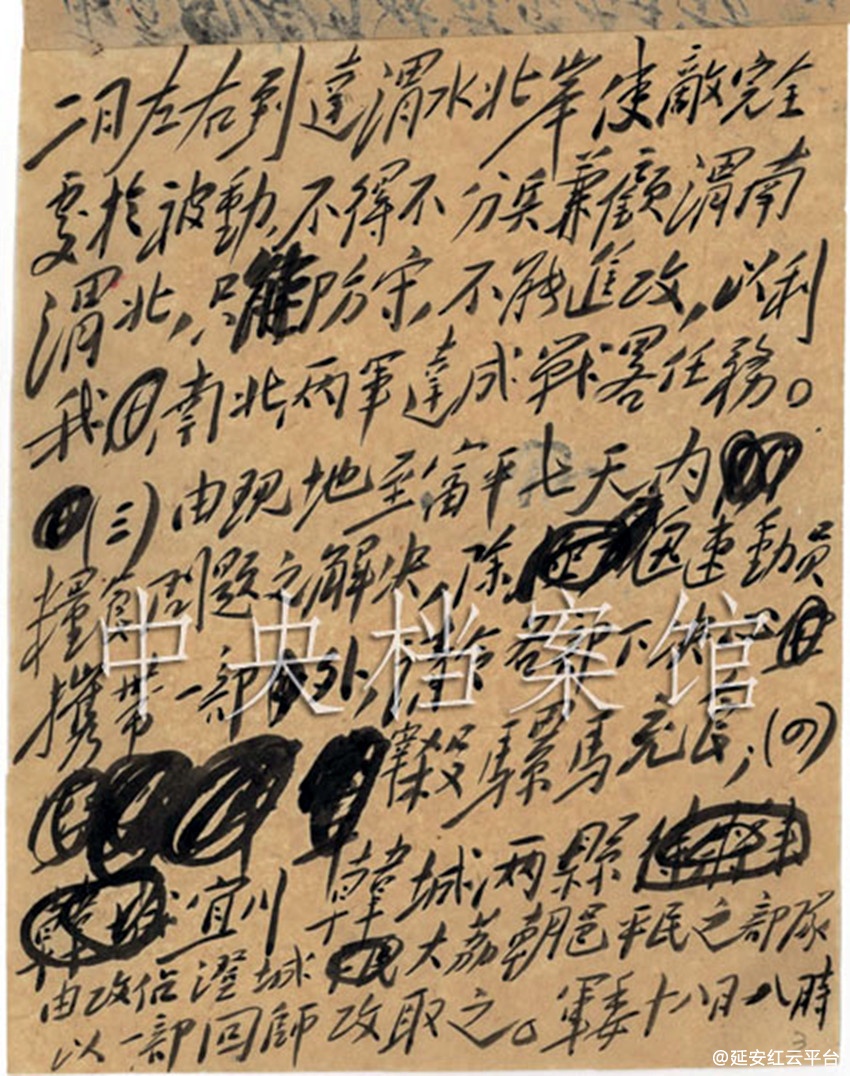 二月左右到達渭水北岸使敵完全
處於被動,不得不分兵兼顧渭南
渭北,只能防守,不能進攻,以利
我南北兩軍達成戰略任務。
(三)由現地至富平七天內
糧食問題之解決,除迅速動員
攜帶一部外,各下
宰殺騾馬充飢;(四)
宜川 韓城兩縣
由攻佔澄城大荔朝邑平民之部隊
以一部回師攻取之。軍委十八日八時
中央档案馆
3
@延安红云平台